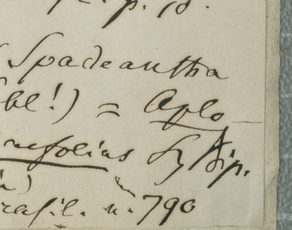 p. 18.
Spadeantha
bl!) = Aplo
refolius
rasil. n. 790